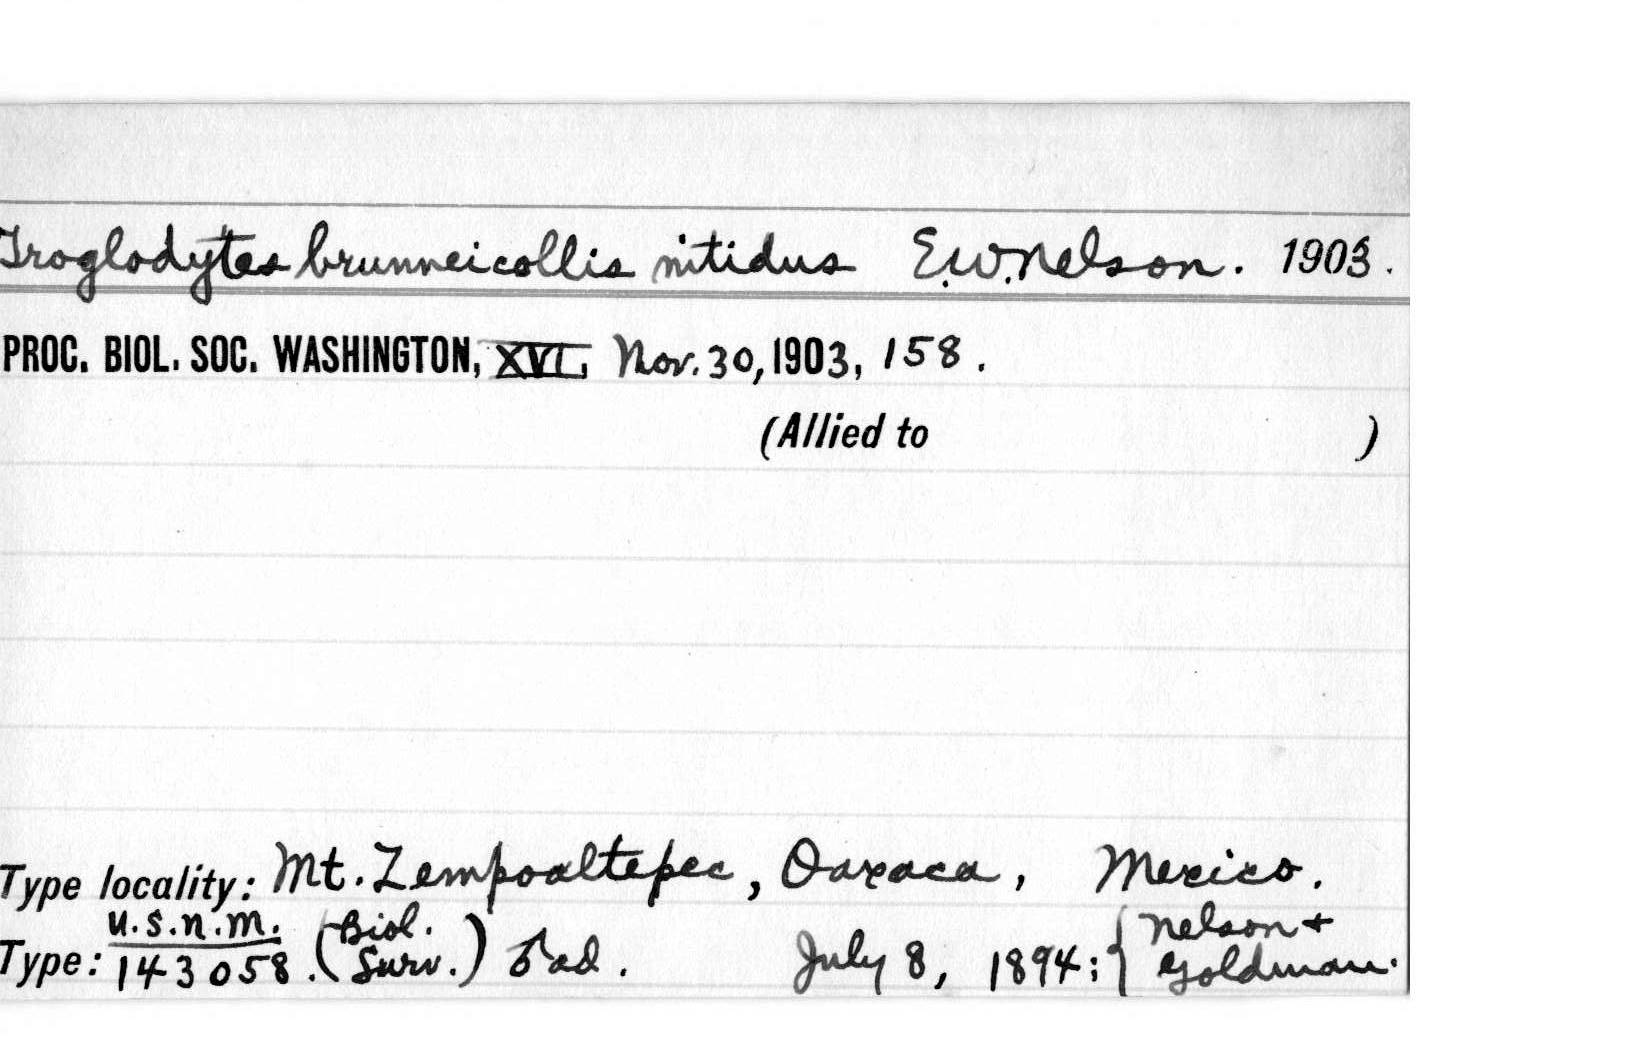 Troglodytes brunneicollis nitidus E.W. Nelson. 1903.
PROC. BIOL. SOC. WASHINGTON, XVI, Nov. 30, 1903, 158.
(Allied to )
Type locality: Mt. Zempoaltepec, Oaxaca, Mexico.
Type: U.S.N.M. 143058. (Biol. Surv.) ♂ ad. July 8, 1894: { Nelson + Goldman.